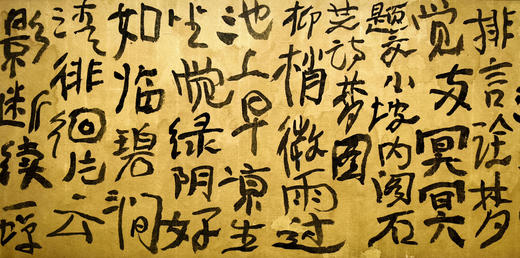 排言詮梦
觉冥冥
题家小坡内阁石
芝诗梦图
柳梢微雨过
池上早凉生
坐觉绿阴好
如临碧涧
湾徘徊片云
影断续一蝉